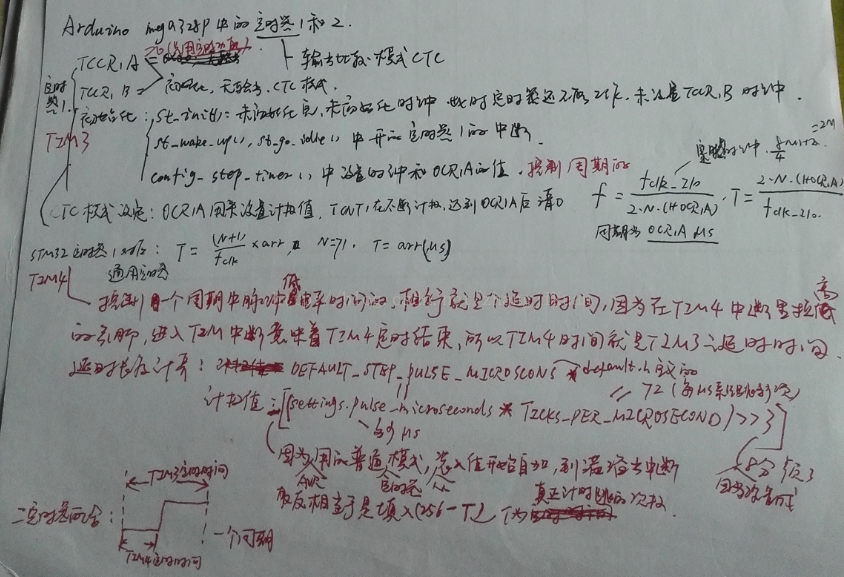 Arduino mega328p 中的定时器1和2.
TCCR1A = 输出比较.模式CTC
TCCR1B = 初始化, CTC模式.
定时器1.
TIM3
初始化: st_init(): 未初始化完, 未初始化时钟 此时定时器还不能工作. 未设置TCCR1B时钟.
st_wake_up(), st_go_idle() 中开启定时器1的中断.
config_step_timer() 中设置时钟和OCR1A的值, 控制周期的
CTC模式设定: OCR1A用来设置计数值, TCNT1在不断计数, 达到OCR1A后清0
f = fclk_I/O / 2·N·(1+OCR1A) . T = 2·N·(1+OCR1A) / fclk-I/O.
周期为 OCR1A μs
STM32 定时器: T = (N+1)/fclk × arr, N=71. T = arr(μs)
通用定时器
TIM4
控制一个周期中脉冲低电平时间的, 相当就是个延时时间, 因为在TIM4中断里拉高
的引脚, 进入TIM中断意味着TIM4定时结束, 所以TIM4时间就是TIM3的延时时间.
延时长度计算: DEFAULT_STEP_PULSE_MICROSECONS default.h 定义的
72 (每μs系统时钟多少次)
计数值: -[(settings.pulse_microseconds * TICKS_PER_MICROSECOND) >>3]
因为用的普通模式, 装入值开始自加, 到溢出中断
AVR 定时器
8分频
取反相当于是填入(256-T), T为真正计时的次数.
二定时器配合:
TIM3定时时间
一个周期
TIM4定时时间